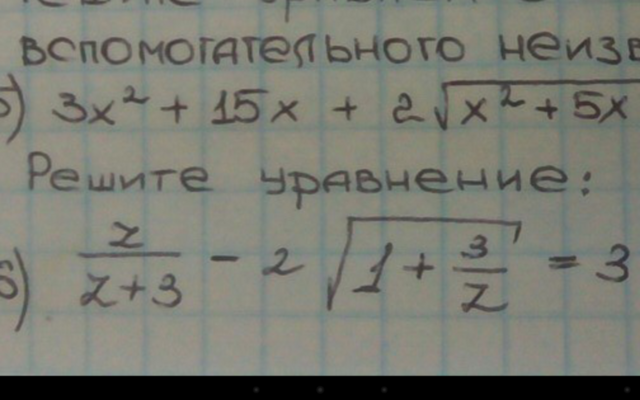 вспомогательного
б) 3x² + 15x + 2√(x² + 5x
Решите уравнение:
б) z/(z+3) - 2√(1 + 3/z) = 3